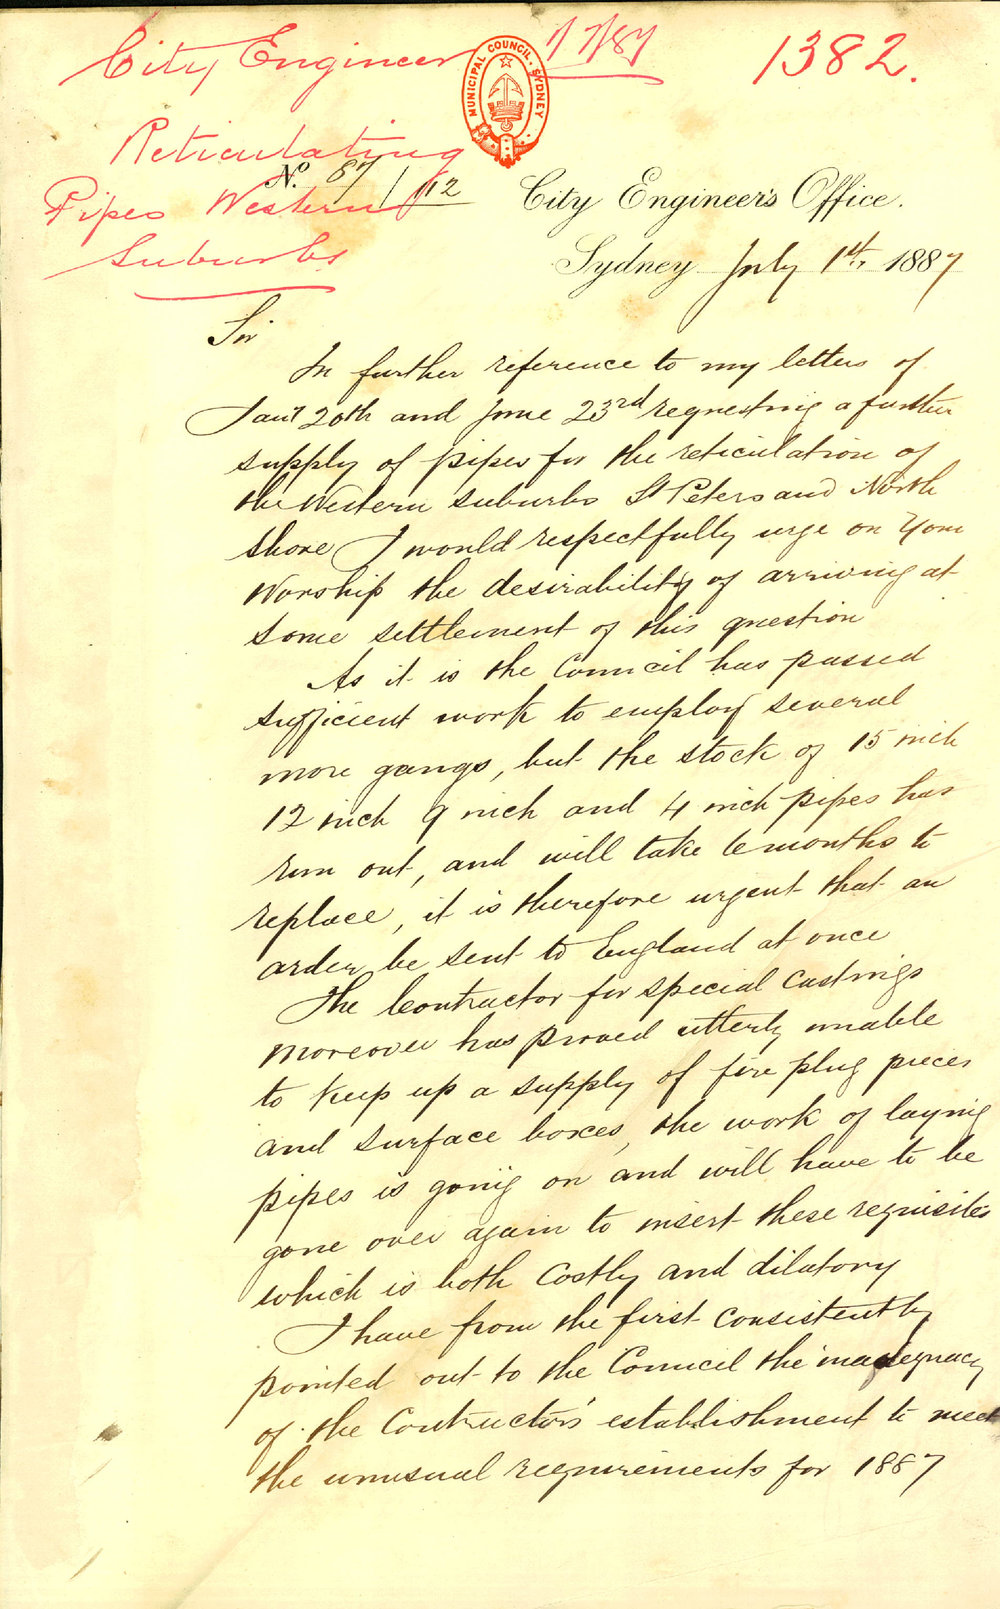 City Engineer 1/7/87
1382.
MUNICIPAL COUNCIL. SYDNEY
Reticulating
Pipes Western
Suburbs
No. 87/112
City Engineer's Office.
Sydney July 1st, 1887
Sir
In further reference to my letters of
Jany 20th and June 23rd requesting a further
supply of pipes for the reticulation of
the Western suburbs St Peters and North
Shore I would respectfully urge on Your
Worship the desirability of arriving at
some settlement of this question
As it is the Council has passed
sufficient work to employ several
more gangs, but the stock of 15 inch
12 inch 9 inch and 4 inch pipes has
run out, and will take 6 months to
replace, it is therefore urgent that an
order be sent to England at once
The Contractor for special castings
moreover has proved utterly unable
to keep up a supply of fire plug pieces
and surface boxes, the work of laying
pipes is going on and will have to be
gone over again to insert these requisites
which is both costly and dilatory
I have from the first consistently
pointed out to the Council the inadequacy
of the Contractor's establishment to meet
the unusual requirements for 1887